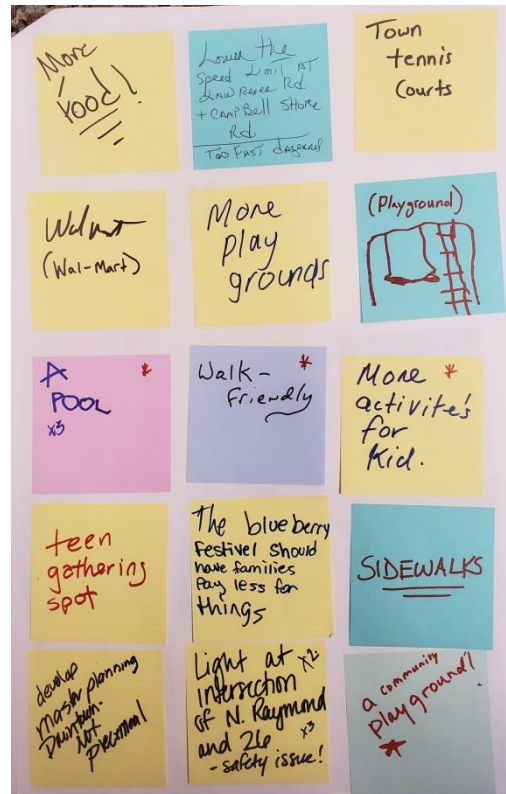 More
food!
Lower the
Speed Limit AT
+ CAMPBELL SHORE
Rd
TOO FAST
Town
tennis
Courts
(Wal-Mart)
More
play
grounds
(Playground)
A
POOL
x3
*
Walk-
Friendly
*
More *
activite's
for
Kid.
teen
gathering
spot
The blueberry
Festivel should
have families
Pay less for
things
SIDEWALKS
develop
master planning
Downtown-
Not
Piecemeal
Light at x2
intersection
of N. Raymond
and 26 x3
- safety issue!
a community
playground!
*